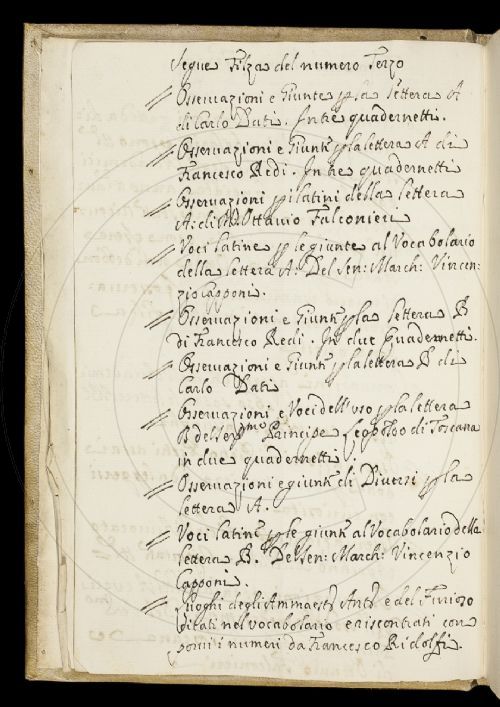 Segue Filza del numero Terzo
// Osservazioni e Giunte p la lettera A
di Carlo Dati. In tre quadernetti.
// Osservazioni e Giunte p la lettera A di
Francesco Redi. In tre quadernetti
// Osservazioni p i latini della lettera
A: di Ottavio Falconieri
// Voci latine p le giunte al Vocabolario
della lettera A: Del Sen: March: Vincen:
zio Capponi.
// Osservazioni e Giunte p la lettera B
di Francesco Redi. In due Quadernetti.
// Osservazioni e Giunte p la lettera B di
Carlo Dati
// Osservazioni e Voci dell'uso p la lettera
B del Ser.mo Principe Leopoldo di Toscana
in due quadernetti.
// Osservazioni e giunte di Diversi p la
lettera A.
// Voci latine p le giunte al Vocabolario della
lettera B. Del Sen: March: Vincenzio
Capponi.
// Luoghi degli Ammaest: Ant: e del Furioso
citati nel vocabolario e riscontrati con
i numeri da Francesco Ridolfi.